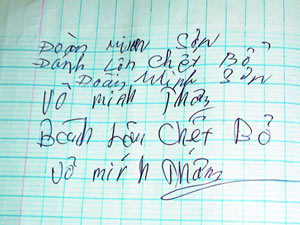 Đoàn minh Sơn
Đánh Lộn Chết Bỏ
Đoàn Minh Sơn
Võ minh Thắm
Đánh Lộn Chết Bỏ
Võ minh Thắm